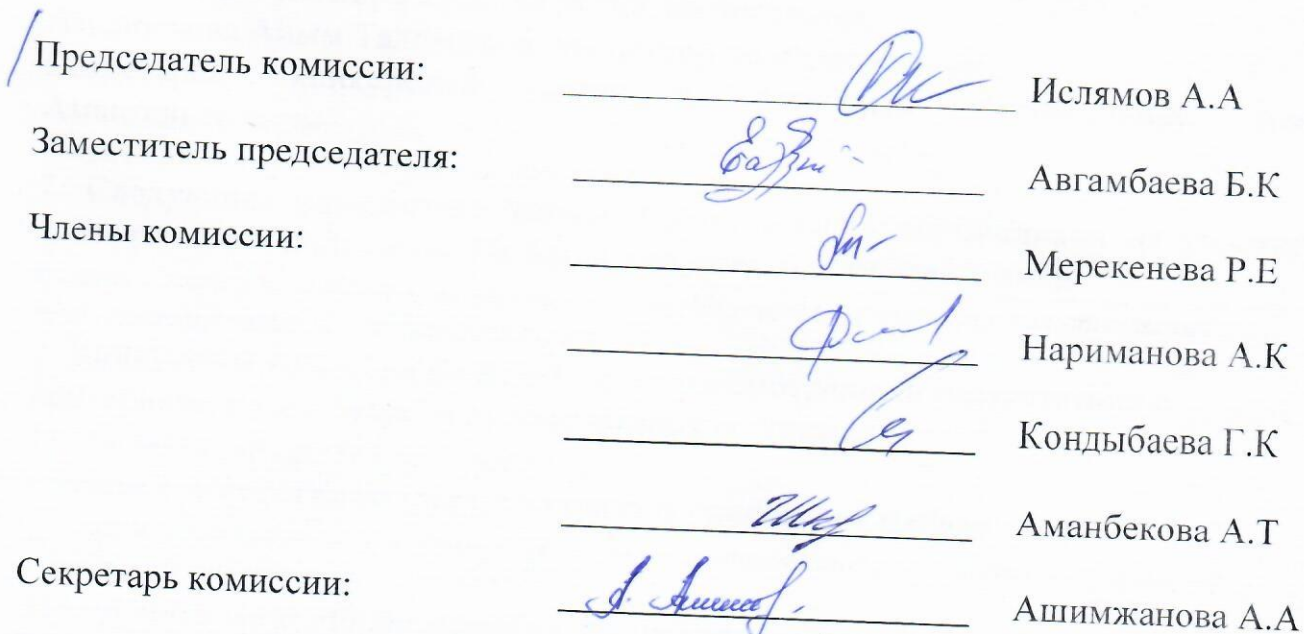 Председатель комиссии: Ислямов А.А
Заместитель председателя: Авгамбаева Б.К
Члены комиссии: Мерекенева Р.Е
Нариманова А.К
Кондыбаева Г.К
Аманбекова А.Т
Секретарь комиссии: Ашимжанова А.А